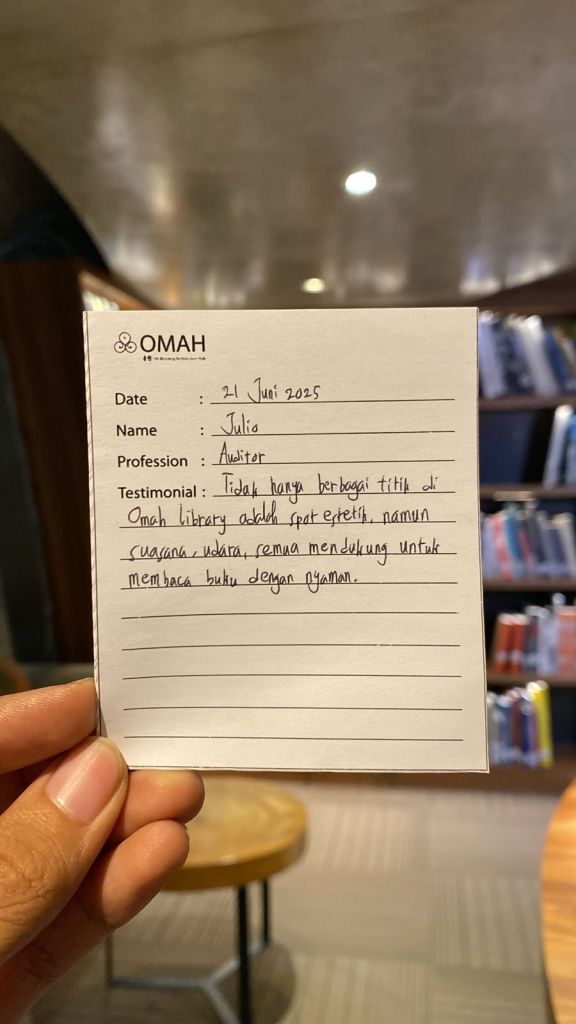 OMAH
Date : 21 Juni 2025
Name : Julio
Profession : Auditor
Testimonial : Tidak hanya berbagai titik di
Omah Library adalah spot estetik, namun
suasana, udara, semua mendukung untuk
membaca buku dengan nyaman.